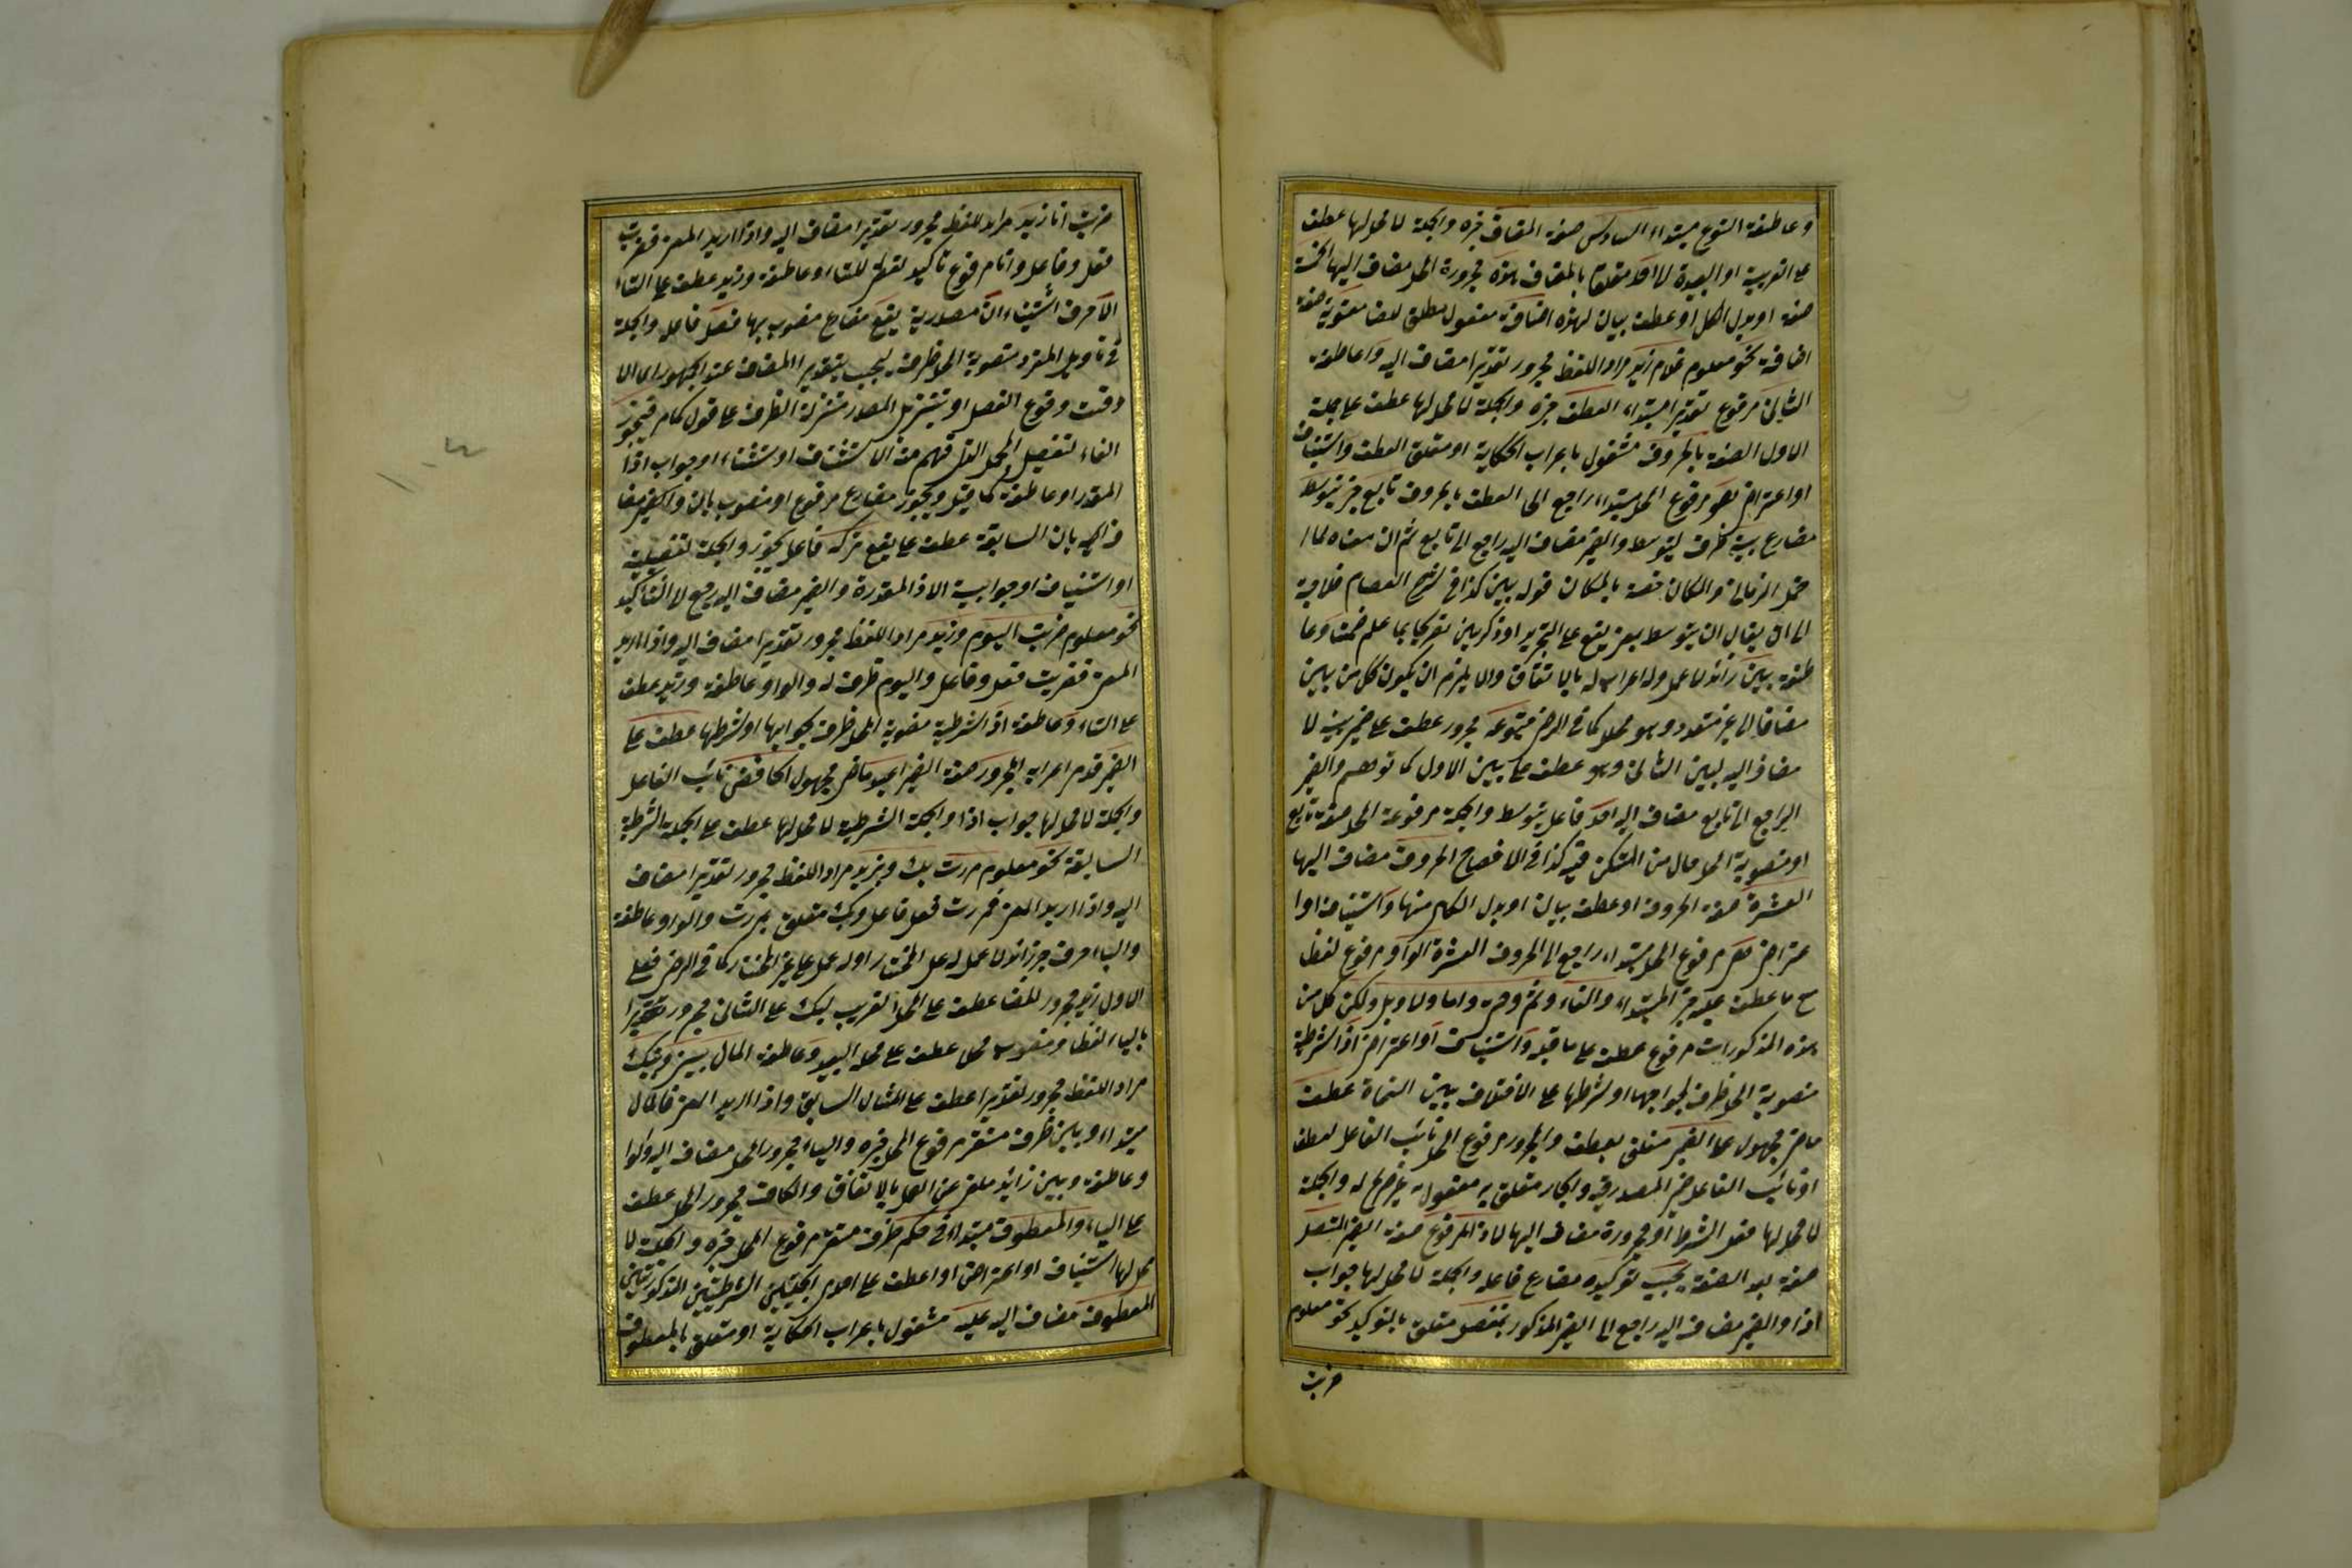 وعاطفة النوع مبتداء السادس صفة المضاف خبره والجملة لا محل لها عطف
على القريبة او البعيدة لا احد متعلق بالمضاف هذه مجرورة المحل مضاف اليها الخمسة
صفة او بدل الكل او عطف بيان لهذه اضافة مفعول مطلق لمضاف معنوية صفة
اضافة نحو معلوم غلام زيد مراد اللفظ مجرور تقديرا مضاف اليه وعاطفة
الثانى مرفوع تقديرا مبتداء العطف خبره والجملة لا محل لها عطف على جملة
الاول الصفة بالحروف مشغول باعراب الحكاية او متعلق العطف واستيناف
او اعتراض هو مرفوع المحل مبتداء راجع الى العطف بالحروف تابع خبر يتوسط
مضارع بينه ظرف ليتوسط والضمير مضاف اليه راجع الى تابع ثم ان معناه لما
احتمل الزمان والمكان خصه بالمكان قوله بين كذا فى شرح العصام فلا حاجة
الى ان يقال ان يتوسط بمعنى يقع على التجريد او ذكر بين تصريحا بما علم ضمنا وعا
طفة بين زائد لا عمل ولا اعراب له بالاتفاق والا يلزم ان يكون كل من بين
مضافا الى غير متعدد وهو محال كما فى الرضى متبوعه مجرور عطف على ضمير بينه لا
مضاف اليه لبين الثانى وهو عطف على بين الاول كما توهم والضمير
الراجع الى تابع مضاف اليه احد فاعل يتوسط والجملة مرفوعة المحل صفة تابع
او منصوبة المحل حال من المستكن فيه كذا فى الافصاح الحروف مضاف اليها
العشرة صفة الحروف او عطف بيان او بدل الكل منها واستيناف او ا
عتراض هى مرفوع المحل مبتداء راجع الى الحروف العشرة الواو مرفوع لفظا
مع ما عطف عليه خبر المبتداء والفاء وثم وحتى واو واما وام ولا وبل ولكن كل من
هذه المذكورات مرفوع عطف على ما قبله واستيناف او اعتراض اذا الشرطية
منصوبة المحل ظرف لجوابها او لشرطها على الاختلاف بين النحاة عطف
ماض مجهول على الضمير متعلق بعطف والمجرور مرفوع المحل نائب الفاعل لعطف
او نائب الفاعل ضمير المصدر فيه والجار متعلق به مفعول به غير صريح له والجملة
لا محل لها فعل الشرط او مجرورة مضاف اليها لاذا المرفوع صفة الضمير المتصل
صفة بعد الصفة يجب توكيده مضارع فاعله والجملة لا محل لها جواب
اذا والضمير مضاف اليه راجع الى الضمير المذكور بمنفصل متعلق بالتوكيد نحو معلوم
ضربت
ضربت انا وزيد مراد اللفظ مجرور تقديرا مضاف اليه واذا اريد المعنى فضربت
فعل وفاعل وانا مرفوع تأكيد لفظى للتاء وعاطفة وزيد عطف على التاء
الا حرف استثناء ان مصدرية يقع مضارع منصوب بها فصل فاعله والجملة
فى تأويل المفرد منصوبة المحل ظرف ليجب بتقدير المضاف عند الجمهور اى الا
وقت وقوع الفصل او بتنزيل المصدر منزلة الظرف على قول كام فيجوز
الفاء لتفصيل المجمل الذى فهم من الاستثناف او استثناء او جواب اذا
المقدر او عاطفة كما قيل ويجوز مضارع مرفوع او منصوب بان والضمير مضا
ف اليه بان السابقة عطف على يقع تركه فاعل يجوز والجملة تفصيلية
او استينافا او جوابية الاذا المقدرة والضمير مضاف اليه راجع الى التأكيد
نحو معلوم ضربت اليوم وزيد مراد اللفظ مجرور تقديرا مضاف اليه واذا اريد
المعنى فضربت فعل وفاعل واليوم ظرف له والواو عاطفة وزيد عطف
على التاء وعاطفة اذا الشرطية منصوبة المحل ظرف بجوابها او لشرطها عطف على
الضمير قدم اعرابه المجرور صفة الضمير اعيد ماض مجهول الخافض نائب الفاعل
والجملة لا محل لها جواب اذا والجملة الشرطية لا محل لها عطف على الجملة الشرطية
السابقة نحو معلوم مررت بك وبزيد مراد اللفظ مجرور تقديرا مضاف
اليه واذا اريد المعنى فمررت فعل فاعل وبك متعلق بمررت والواو عاطفة
والباء حرف جر زائد لا عمل له على المختار او له عمل على غير المختار كما فى الرضى فعلى
الاول زيد مجرور لفظا عطف على المحل القريب لبك على الثانى مجرور تقديرا
بالباء لفظا ومنصوب محلا عطف على محله البعيد وعاطفة المال بينى وبينك
مراد اللفظ مجرور تقديرا عطف على المثال السابق واذا اريد المعنى فالمال
مبتداء وبين ظرف مستقر مرفوع المحل خبره والياء مجرور المحل مضاف اليه والواو
وعاطفة وبين زائد ملغى عن العمل بالاتفاق والكاف مجرور المحل عطف
على الياء والمعطوف مبتداء فى حكم ظرف مستقر مرفوع المحل خبره والجملة لا
محل لها استيناف او اعتراض او عطف على احدى الجملتين الشرطيتين المذكورتين
المعطوف مضاف اليه عليه مشغول باعراب الحكاية او متعلق بالمعطوف